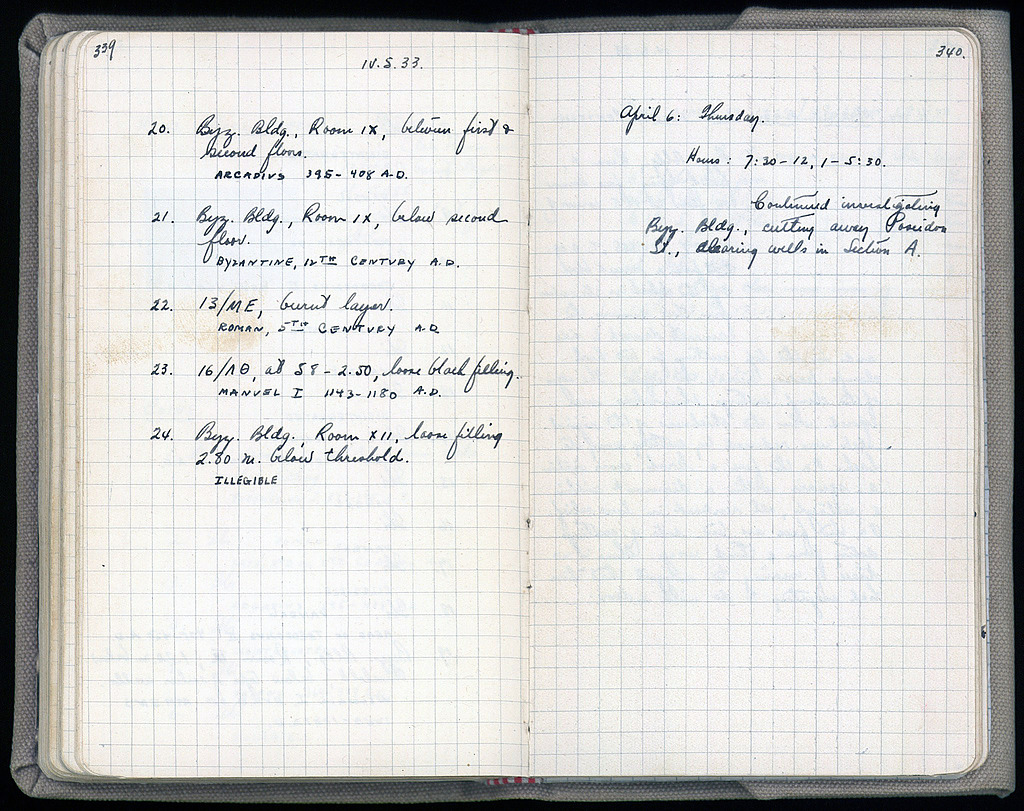 339
IV.5.33.
20. Byz. Bldg., Room IX, between first &
second floors.
ARCADIUS 395-408 A.D.
21. Byz. Bldg., Room IX, below second
floor.
BYZANTINE, 12TH CENTURY A.D.
22. 13/ME, burnt layer.
ROMAN, 5TH CENTURY A.D.
23. 16/ΛΘ, at 58-2.50, loose black filling.
MANUEL I 1143-1180 A.D.
24. Byz. Bldg., Room XII, loose filling
2.80 m. below threshold.
ILLEGIBLE
340.
April 6: Thursday.
Hours: 7:30-12, 1-5:30.
Continued investigating
Byz. Bldg., cutting away Poseidon
St., clearing wells in Section A.